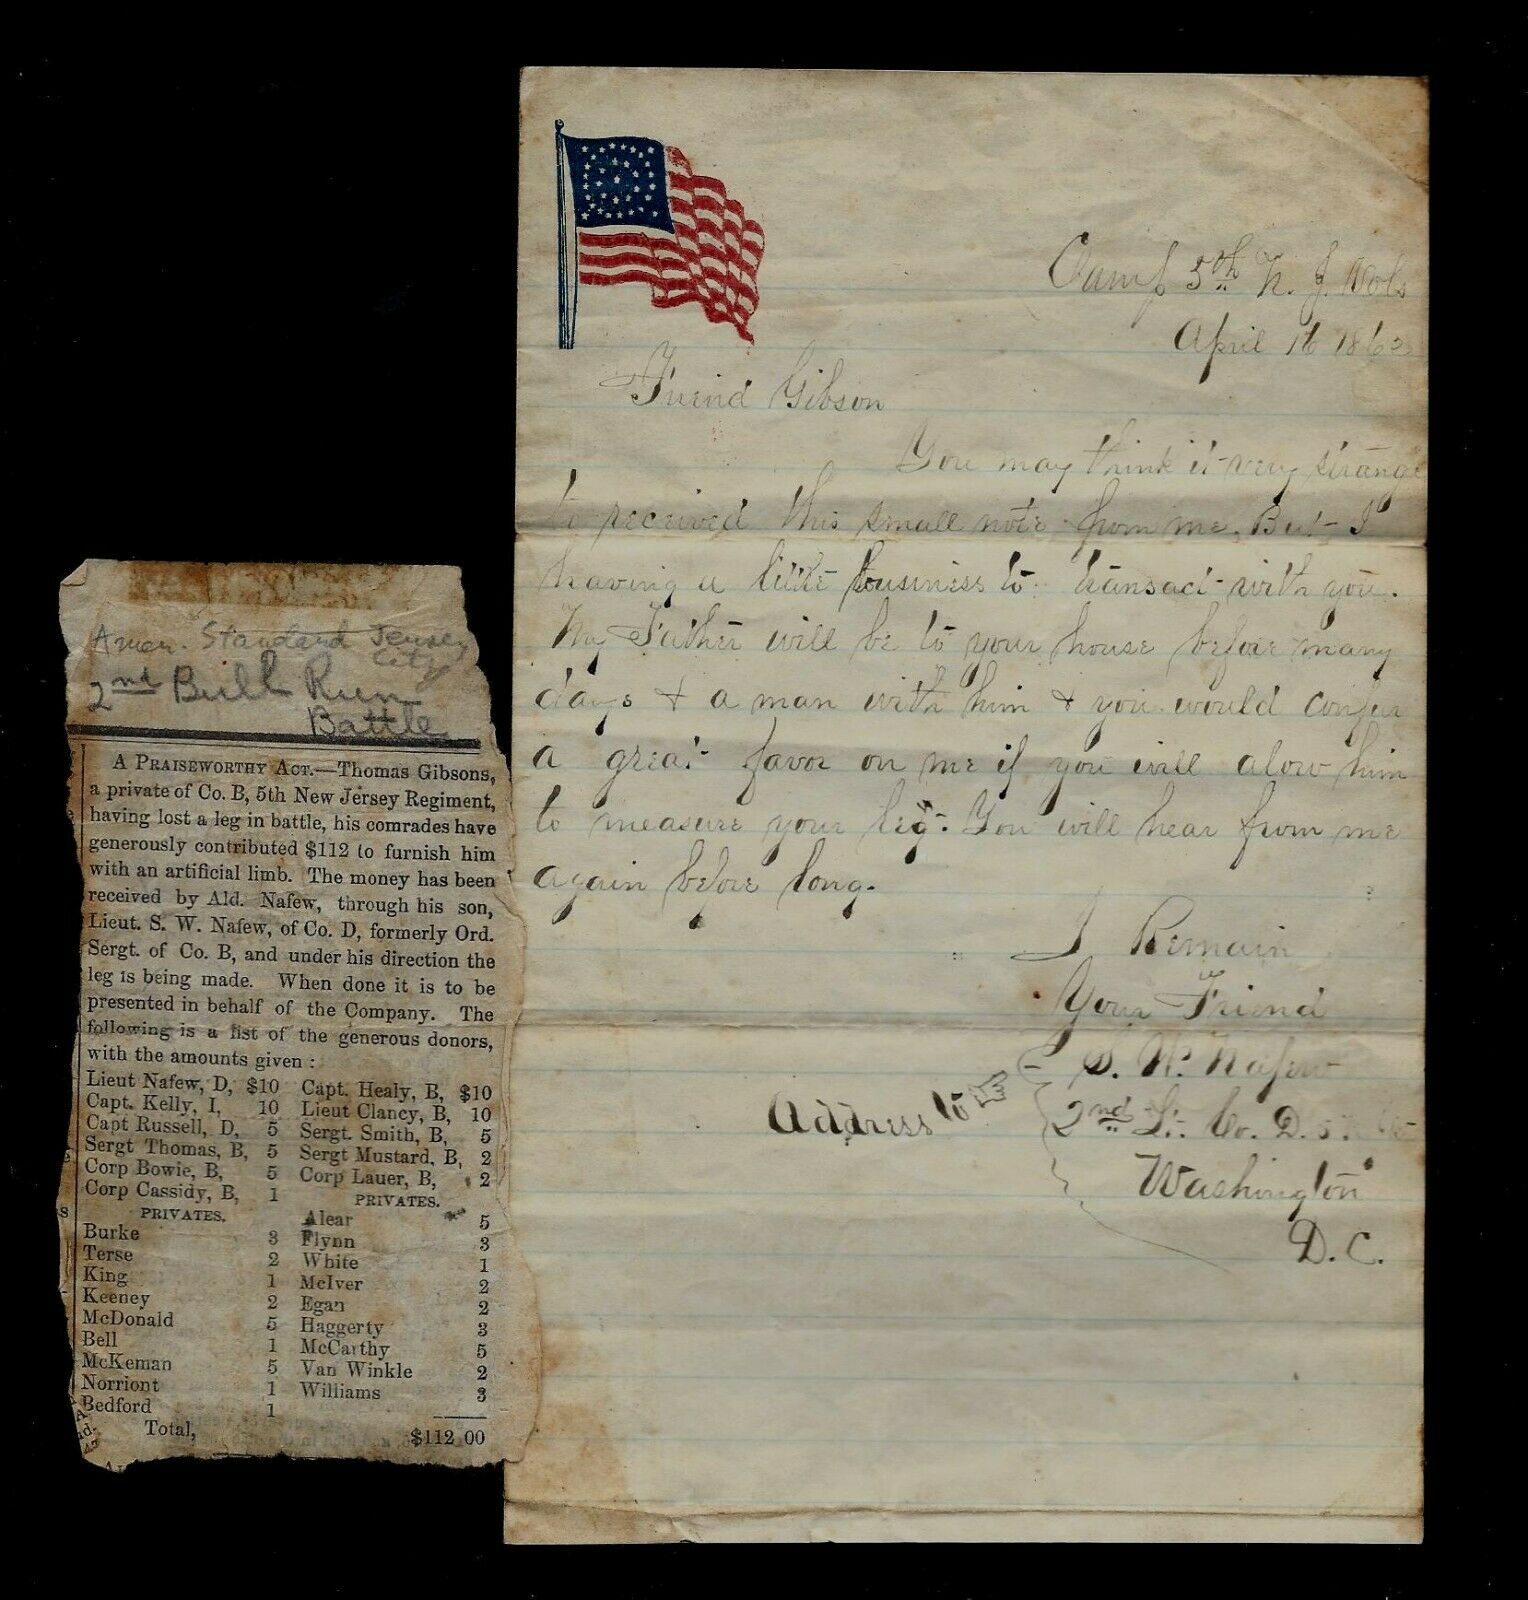 Amer. Standard Jersey
City
2nd Bull Run
Battle
A PRAISEWORTHY ACT.—Thomas Gibsons,
a private of Co. B, 5th New Jersey Regiment,
having lost a leg in battle, his comrades have
generously contributed $112 to furnish him
with an artificial limb. The money has been
received by Ald. Nafew, through his son,
Lieut. S. W. Nafew, of Co. D, formerly Ord.
Sergt. of Co. B, and under his direction the
leg is being made. When done it is to be
presented in behalf of the Company. The
following is a list of the generous donors,
with the amounts given :
Lieut Nafew, D, $10 Capt. Healy, B, $10
Capt. Kelly, I, 10 Lieut Clancy, B, 10
Capt Russell, D, 5 Sergt. Smith, B, 5
Sergt Thomas, B, 5 Sergt Mustard, B, 2
Corp Bowie, B, 5 Corp Lauer, B, 2
Corp Cassidy, B, 1 PRIVATES.
PRIVATES. Alear 5
Burke 3 Flynn 3
Terse 2 White 1
King 1 McIver 2
Keeney 2 Egan 2
McDonald 5 Haggerty 3
Bell 1 McCarthy 5
McKeman 5 Van Winkle 2
Norriont 1 Williams 3
Bedford 1
Total, $112 00
Camp 5th N. J. Vols
April 16 1863
Friend Gibson
You may think it very strange
to received this small note from me. But I
having a little business to transact with you.
My Father will be to your house before many
days & a man with him & you would confer
a great favor on me if you will alow him
to measure your leg. You will hear from me
again before long.
I Remain
Your Friend
S. W. Nafew
Address to 2nd Lt. Co. D. 5
Washington
D. C.